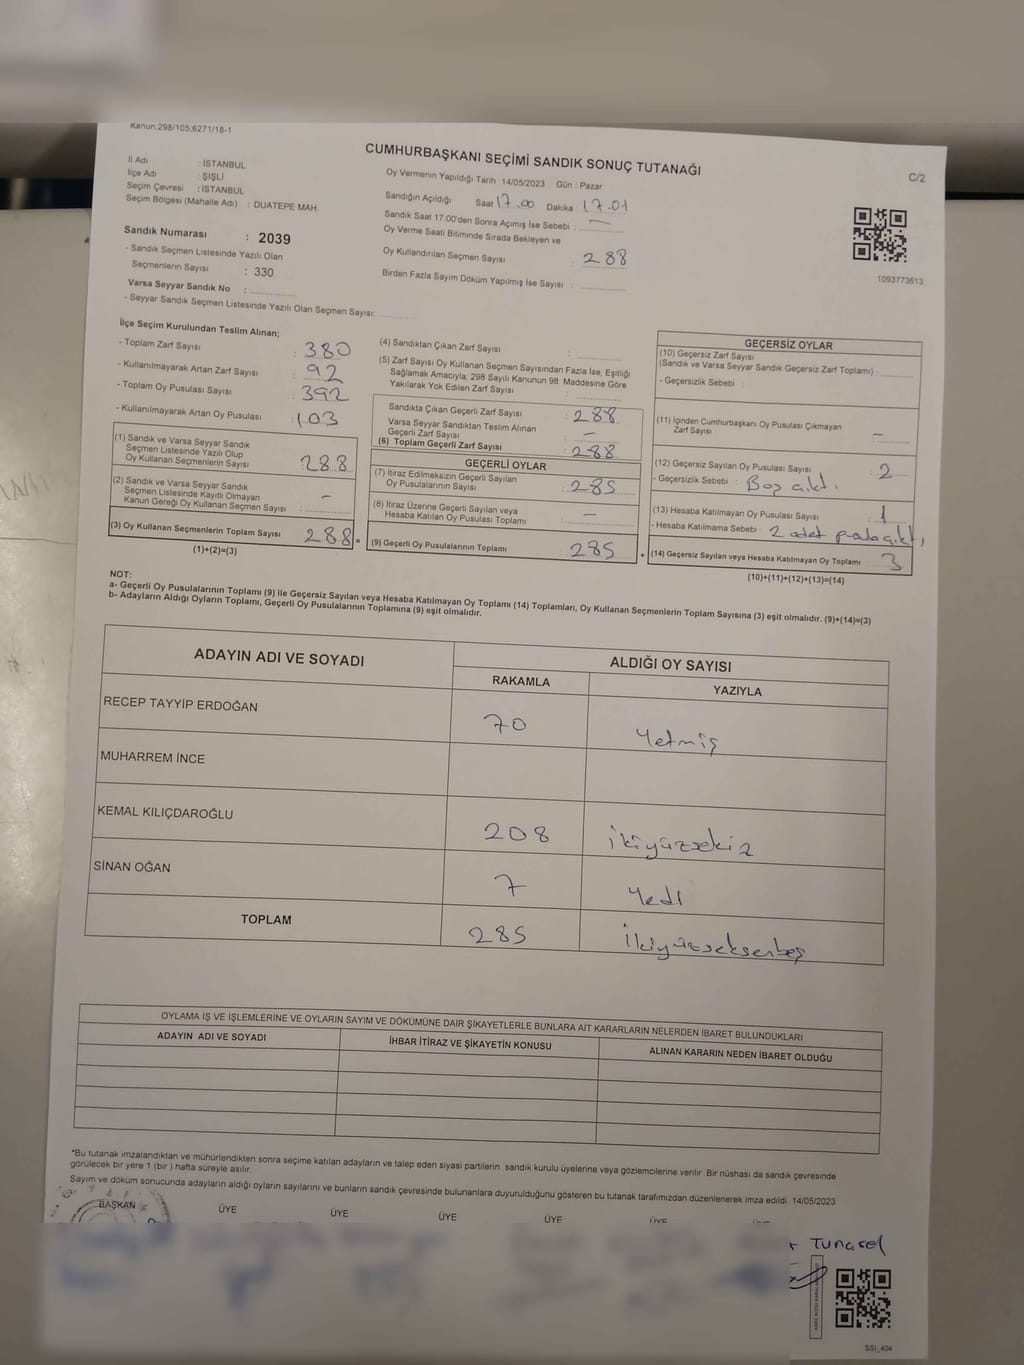 Kanun:298/105;6271/18-1
CUMHURBAŞKANI SEÇİMİ SANDIK SONUÇ TUTANAĞI
C/2
İl Adı : İSTANBUL
İlçe Adı : ŞİŞLİ
Seçim Çevresi : İSTANBUL
Seçim Bölgesi (Mahalle Adı) : DUATEPE MAH.
Oy Vermenin Yapıldığı Tarih : 14/05/2023 Gün : Pazar
Sandığın Açıldığı Saat 17.00 Dakika 17.01
Sandık Saat 17:00'den Sonra Açımış İse Sebebi : —
Oy Verme Saati Bitiminde Sırada Bekleyen ve
Oy Kullandırılan Seçmen Sayısı : 288
Birden Fazla Sayım Döküm Yapılmış İse Sayısı :
1093773613
Sandık Numarası : 2039
- Sandık Seçmen Listesinde Yazılı Olan
Seçmenlerin Sayısı : 330
Varsa Seyyar Sandık No :
- Seyyar Sandık Seçmen Listesinde Yazılı Olan Seçmen Sayısı:
İlçe Seçim Kurulundan Teslim Alınan;
- Toplam Zarf Sayısı : 380
- Kullanılmayarak Artan Zarf Sayısı : 92
- Toplam Oy Pusulası Sayısı : 392
- Kullanılmayarak Artan Oy Pusulası : 103
(1) Sandık ve Varsa Seyyar Sandık
Seçmen Listesinde Yazılı Olup
Oy Kullanan Seçmenlerin Sayısı : 288
(2) Sandık ve Varsa Seyyar Sandık
Seçmen Listesinde Kayıtlı Olmayan
Kanun Gereği Oy Kullanan Seçmen Sayısı : –
(3) Oy Kullanan Seçmenlerin Toplam Sayısı : 288 =
(1)+(2)=(3)
(4) Sandıktan Çıkan Zarf Sayısı :
(5) Zarf Sayısı Oy Kullanan Seçmen Sayısından Fazla İse, Eşitliği
Sağlamak Amacıyla; 298 Sayılı Kanunun 98. Maddesine Göre
Yakılarak Yok Edilen Zarf Sayısı :
Sandıkta Çıkan Geçerli Zarf Sayısı : 288
Varsa Seyyar Sandıktan Teslim Alınan
Geçerli Zarf Sayısı : –
(6) Toplam Geçerli Zarf Sayısı : 288
GEÇERLİ OYLAR
(7) İtiraz Edilmeksizin Geçerli Sayılan
Oy Pusulalarının Sayısı : 285
(8) İtiraz Üzerine Geçerli Sayılan veya
Hesaba Katılan Oy Pusulası Toplamı : –
(9) Geçerli Oy Pusulalarının Toplamı : 285 +
GEÇERSİZ OYLAR
(10) Geçersiz Zarf Sayısı
(Sandık ve Varsa Seyyar Sandık Geçersiz Zarf Toplamı) :
- Geçersizlik Sebebi :
(11) İçinden Cumhurbaşkanı Oy Pusulası Çıkmayan
Zarf Sayısı : –
(12) Geçersiz Sayılan Oy Pusulası Sayısı : 2
- Geçersizlik Sebebi : Boş çıktı.
(13) Hesaba Katılmayan Oy Pusulası Sayısı : 1
- Hesaba Katılmama Sebebi : 2 adet
(14) Geçersiz Sayılan veya Hesaba Katılmayan Oy Toplamı : 3
(10)+(11)+(12)+(13)=(14)
NOT:
a- Geçerli Oy Pusulalarının Toplamı (9) ile Geçersiz Sayılan veya Hesaba Katılmayan Oy Toplamı (14) Toplamları, Oy Kullanan Seçmenlerin Toplam Sayısına (3) eşit olmalıdır. (9)+(14)=(3)
b- Adayların Aldığı Oyların Toplamı, Geçerli Oy Pusulalarının Toplamına (9) eşit olmalıdır.
ADAYIN ADI VE SOYADI
ALDIĞI OY SAYISI
RAKAMLA YAZIYLA
RECEP TAYYİP ERDOĞAN 70 Yetmiş
MUHARREM İNCE
KEMAL KILIÇDAROĞLU 208 ikiyüzsekiz
SİNAN OĞAN 7 Yedi
TOPLAM 285 İkiyüzseksenbeş
OYLAMA İŞ VE İŞLEMLERİNE VE OYLARIN SAYIM VE DÖKÜMÜNE DAİR ŞİKAYETLERLE BUNLARA AİT KARARLARIN NELERDEN İBARET BULUNDUKLARI
ADAYIN ADI VE SOYADI İHBAR İTİRAZ VE ŞİKAYETİN KONUSU ALINAN KARARIN NEDEN İBARET OLDUĞU
*Bu tutanak imzalandıktan ve mühürlendikten sonra seçime katılan adayların ve talep eden siyasi partilerin sandık kurulu üyelerine veya gözlemcilerine verilir. Bir nüshası da sandık çevresinde
görülecek bir yere 1 (bir ) hafta süreyle asılır.
Sayım ve döküm sonucunda adayların aldığı oyların sayılarını ve bunların sandık çevresinde bulunanlara duyurulduğunu gösteren bu tutanak tarafımızdan düzenlenerek imza edildi. 14/05/2023
BAŞKAN ÜYE ÜYE ÜYE ÜYE ÜYE
Tunasel
SSİ_404